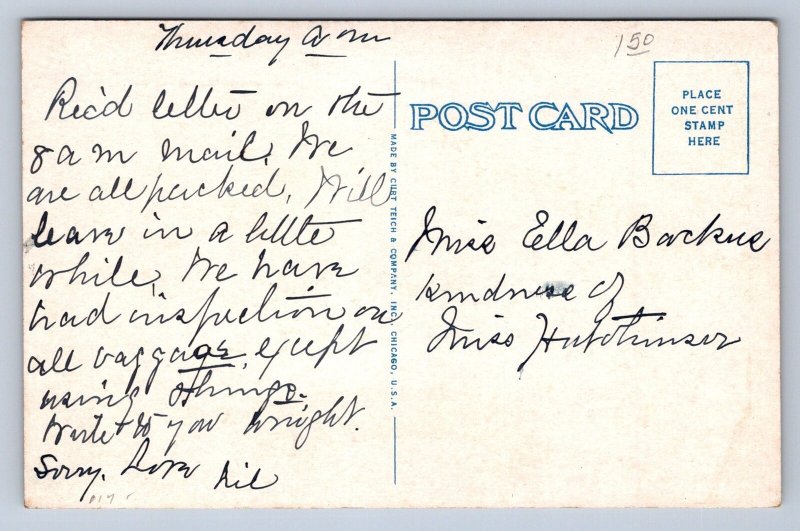 Thursday a m
Rec'd letter on the
8 a m mail. We
are all packed. Will
leave in a little
while. We have
had inspection on
all baggage except
using things.
to you tonight.
Sorry. Love
150
POST CARD
PLACE
ONE CENT
STAMP
HERE
Miss Ella Backus
kindness of
Miss Hutchinson
MADE BY CURT TEICH & COMPANY, INC., CHICAGO, U.S.A.